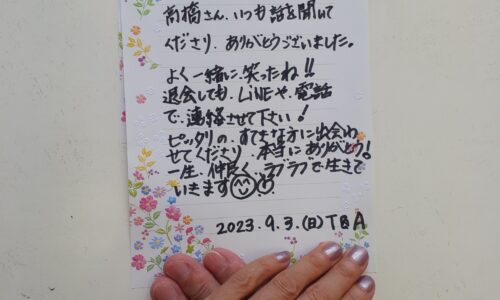 高橋さん、いつも話を聞いて
くださり、ありがとうございました。
よく一緒に、笑ったね!!
退会しても、LiNEや、電話
で、連絡させて下さい!
ピッタリの、すてきな方に出会わ
せてくださり、本当にありがとう!
一生、仲良く、ラブラブで生きて
いきます
2023.9.3.(日)T&A